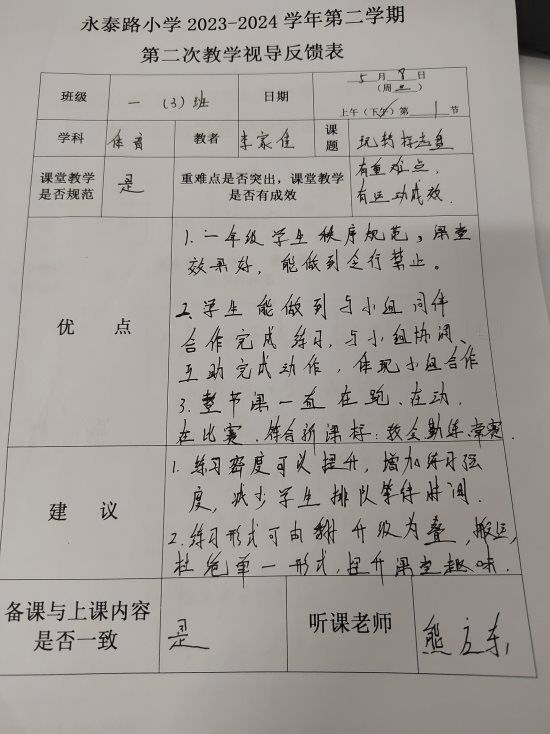 永泰路小学2023-2024学年第二学期
第二次教学视导反馈表
班级 一（3）班 日期 5月8日
（周三）
上午（下午）第1节
学科 体育 教者 李家佳 课题 玩转标志盘
课堂教学是否规范 是 重难点是否突出，课堂教学是否有成效 有重难点，
有运动成效.
优 点
1. 一年级学生秩序规范，课堂
效果好，能做到令行禁止。
2. 学生能做到与小组同伴
合作完成练习，与小组协调、
互助完成动作，体现小组合作
3. 整节课一直在跑、在动、
在比赛.符合新课标：教会勤练、常赛.
建 议
1. 练习密度可以提升，增加练习强
度，减少学生排队等待时间.
2. 练习形式可由翻升级为叠，搬运，
杜绝单一形式，提升课堂趣味.
备课与上课内容
是否一致 是 听课老师 熊